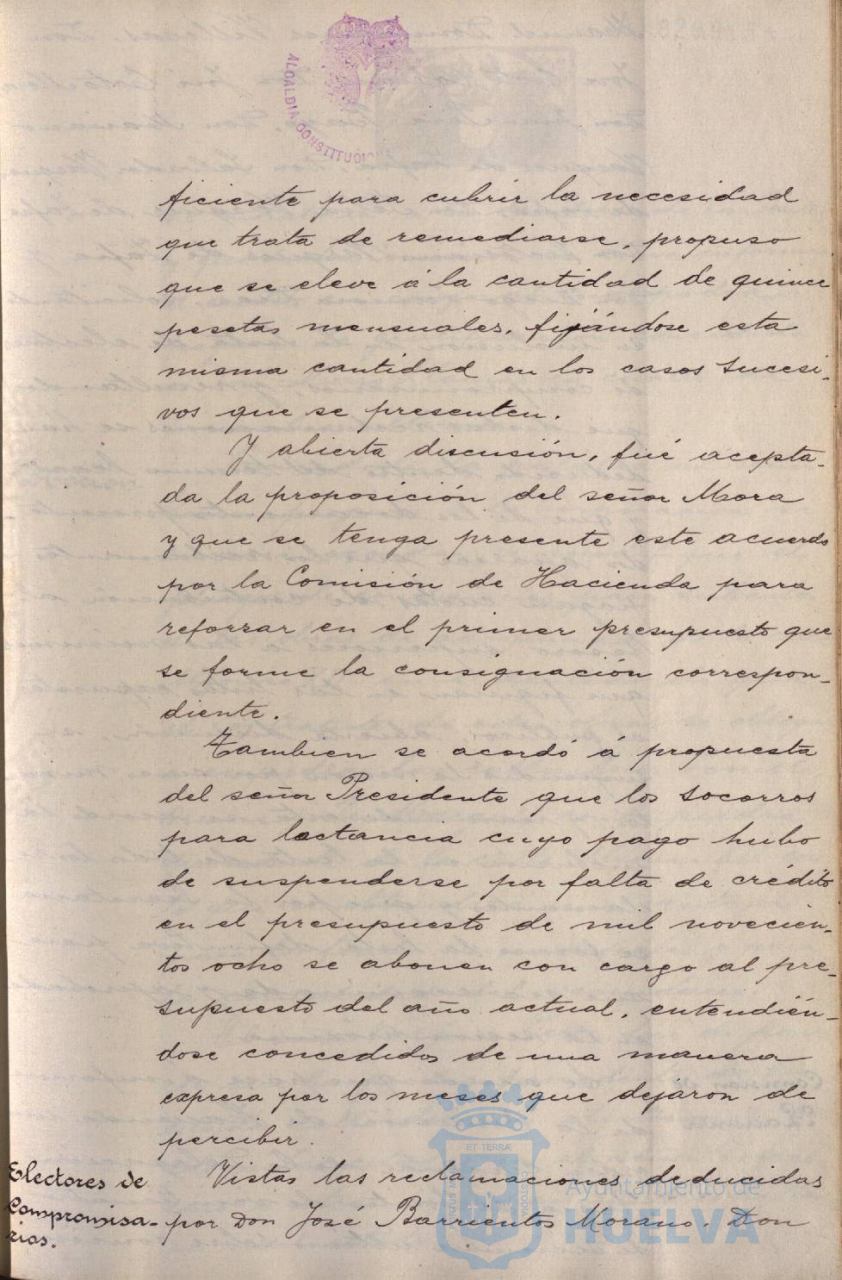 ALCALDIA CONSTITUCIO
ficiente para cubrir la necesidad
que trata de remediarse, propuso
que se eleve á la cantidad de quince
pesetas mensuales, fijándose esta
misma cantidad en los casos sucesi-
vos que se presenten.
Y abierta discusión, fué acepta-
da la proposición del señor Mora
y que se tenga presente este acuerdo
por la Comisión de Hacienda para
reforzar en el primer presupuesto que
se forme la consignación correspon-
diente.
Tambien se acordó á propuesta
del señor Presidente que los socorros
para lactancia cuyo pago hubo
de suspenderse por falta de crédito
en el presupuesto de mil novecien-
tos ocho se abonen con cargo al pre-
supuesto del año actual, entendién-
dose concedidos de una manera
expresa por los meses que dejaron de
percibir.
Electores de
Compromisa-
rios.
Vistas las reclamaciones deducidas
por Don José Barrientos Morano, Don
ET TERRÆ
Ayuntamiento de
HUELVA